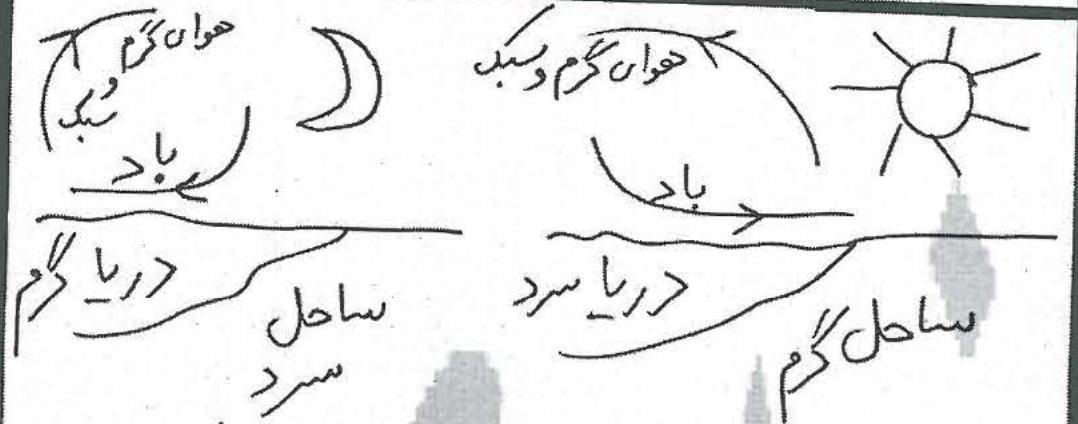 هوای گرم و سبک
باد
دریا سرد
ساحل گرم
هوای گرم
و
سبک
باد
دریا گرم
ساحل
سرد